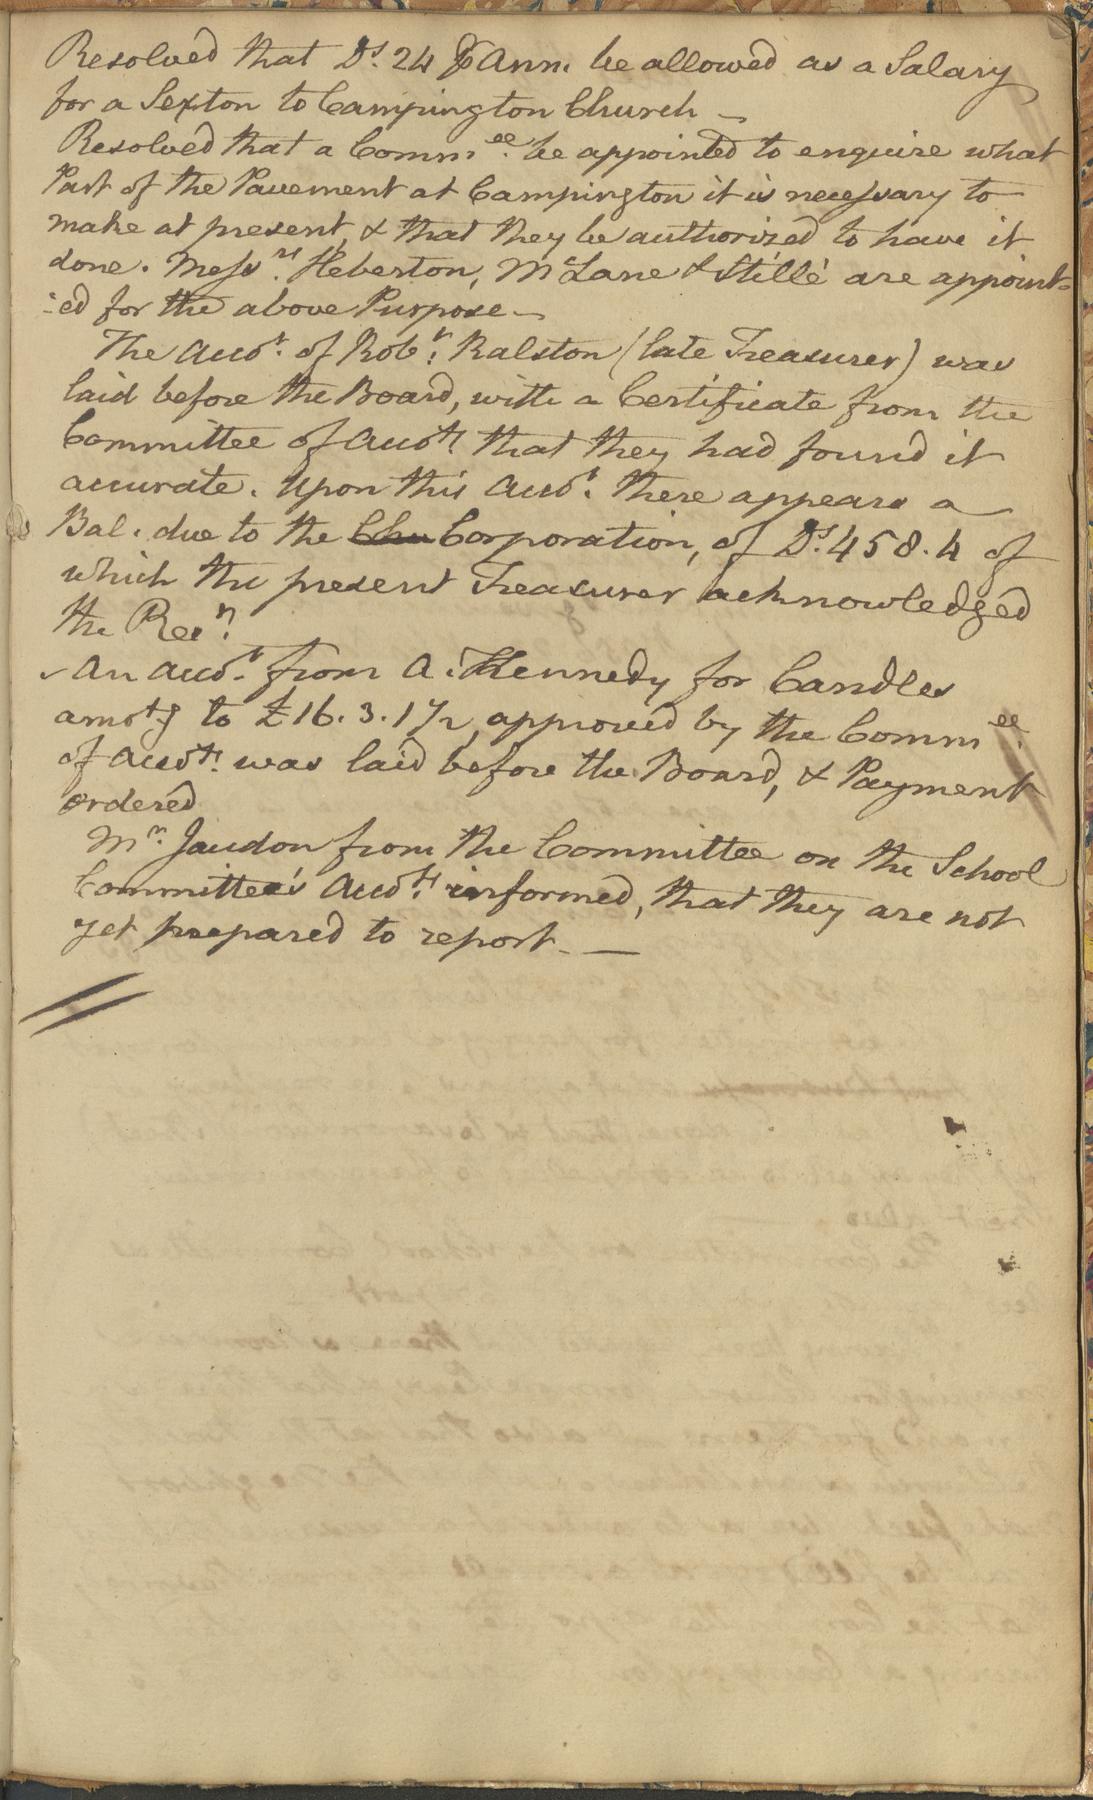 Resolved that Ds. 24 ⅌ Ann. be allowed as a Salary
for a Sexton to Campington Church —
Resolved that a Commee. be appointed to enquire what
Part of the Pavement at Campington it is necessary to
make at present, & that they be authorized to have it
done. Messrs. Heberton, McLane & Stillé are appoint-
:ed for the above Purpose —
The Accot. of Robt. Ralston (late Treasurer) was
laid before the Board, with a Certificate from the
Committee of Accots. that they had found it
accurate. Upon this Accot. there appears a
Bal. due to the Chu Corporation, of Ds. 458.4 of
which the present Treasurer acknowledged
the Recn.
An Accot. from A. Kennedy for Candles
amotg to £16.3.1½, approved by the Commee.
of Accots. was laid before the Board, & Payment
ordered
Mr. Jaudon from the Committee on the School
Committee's Accots. informed, that they are not
yet prepared to report. —